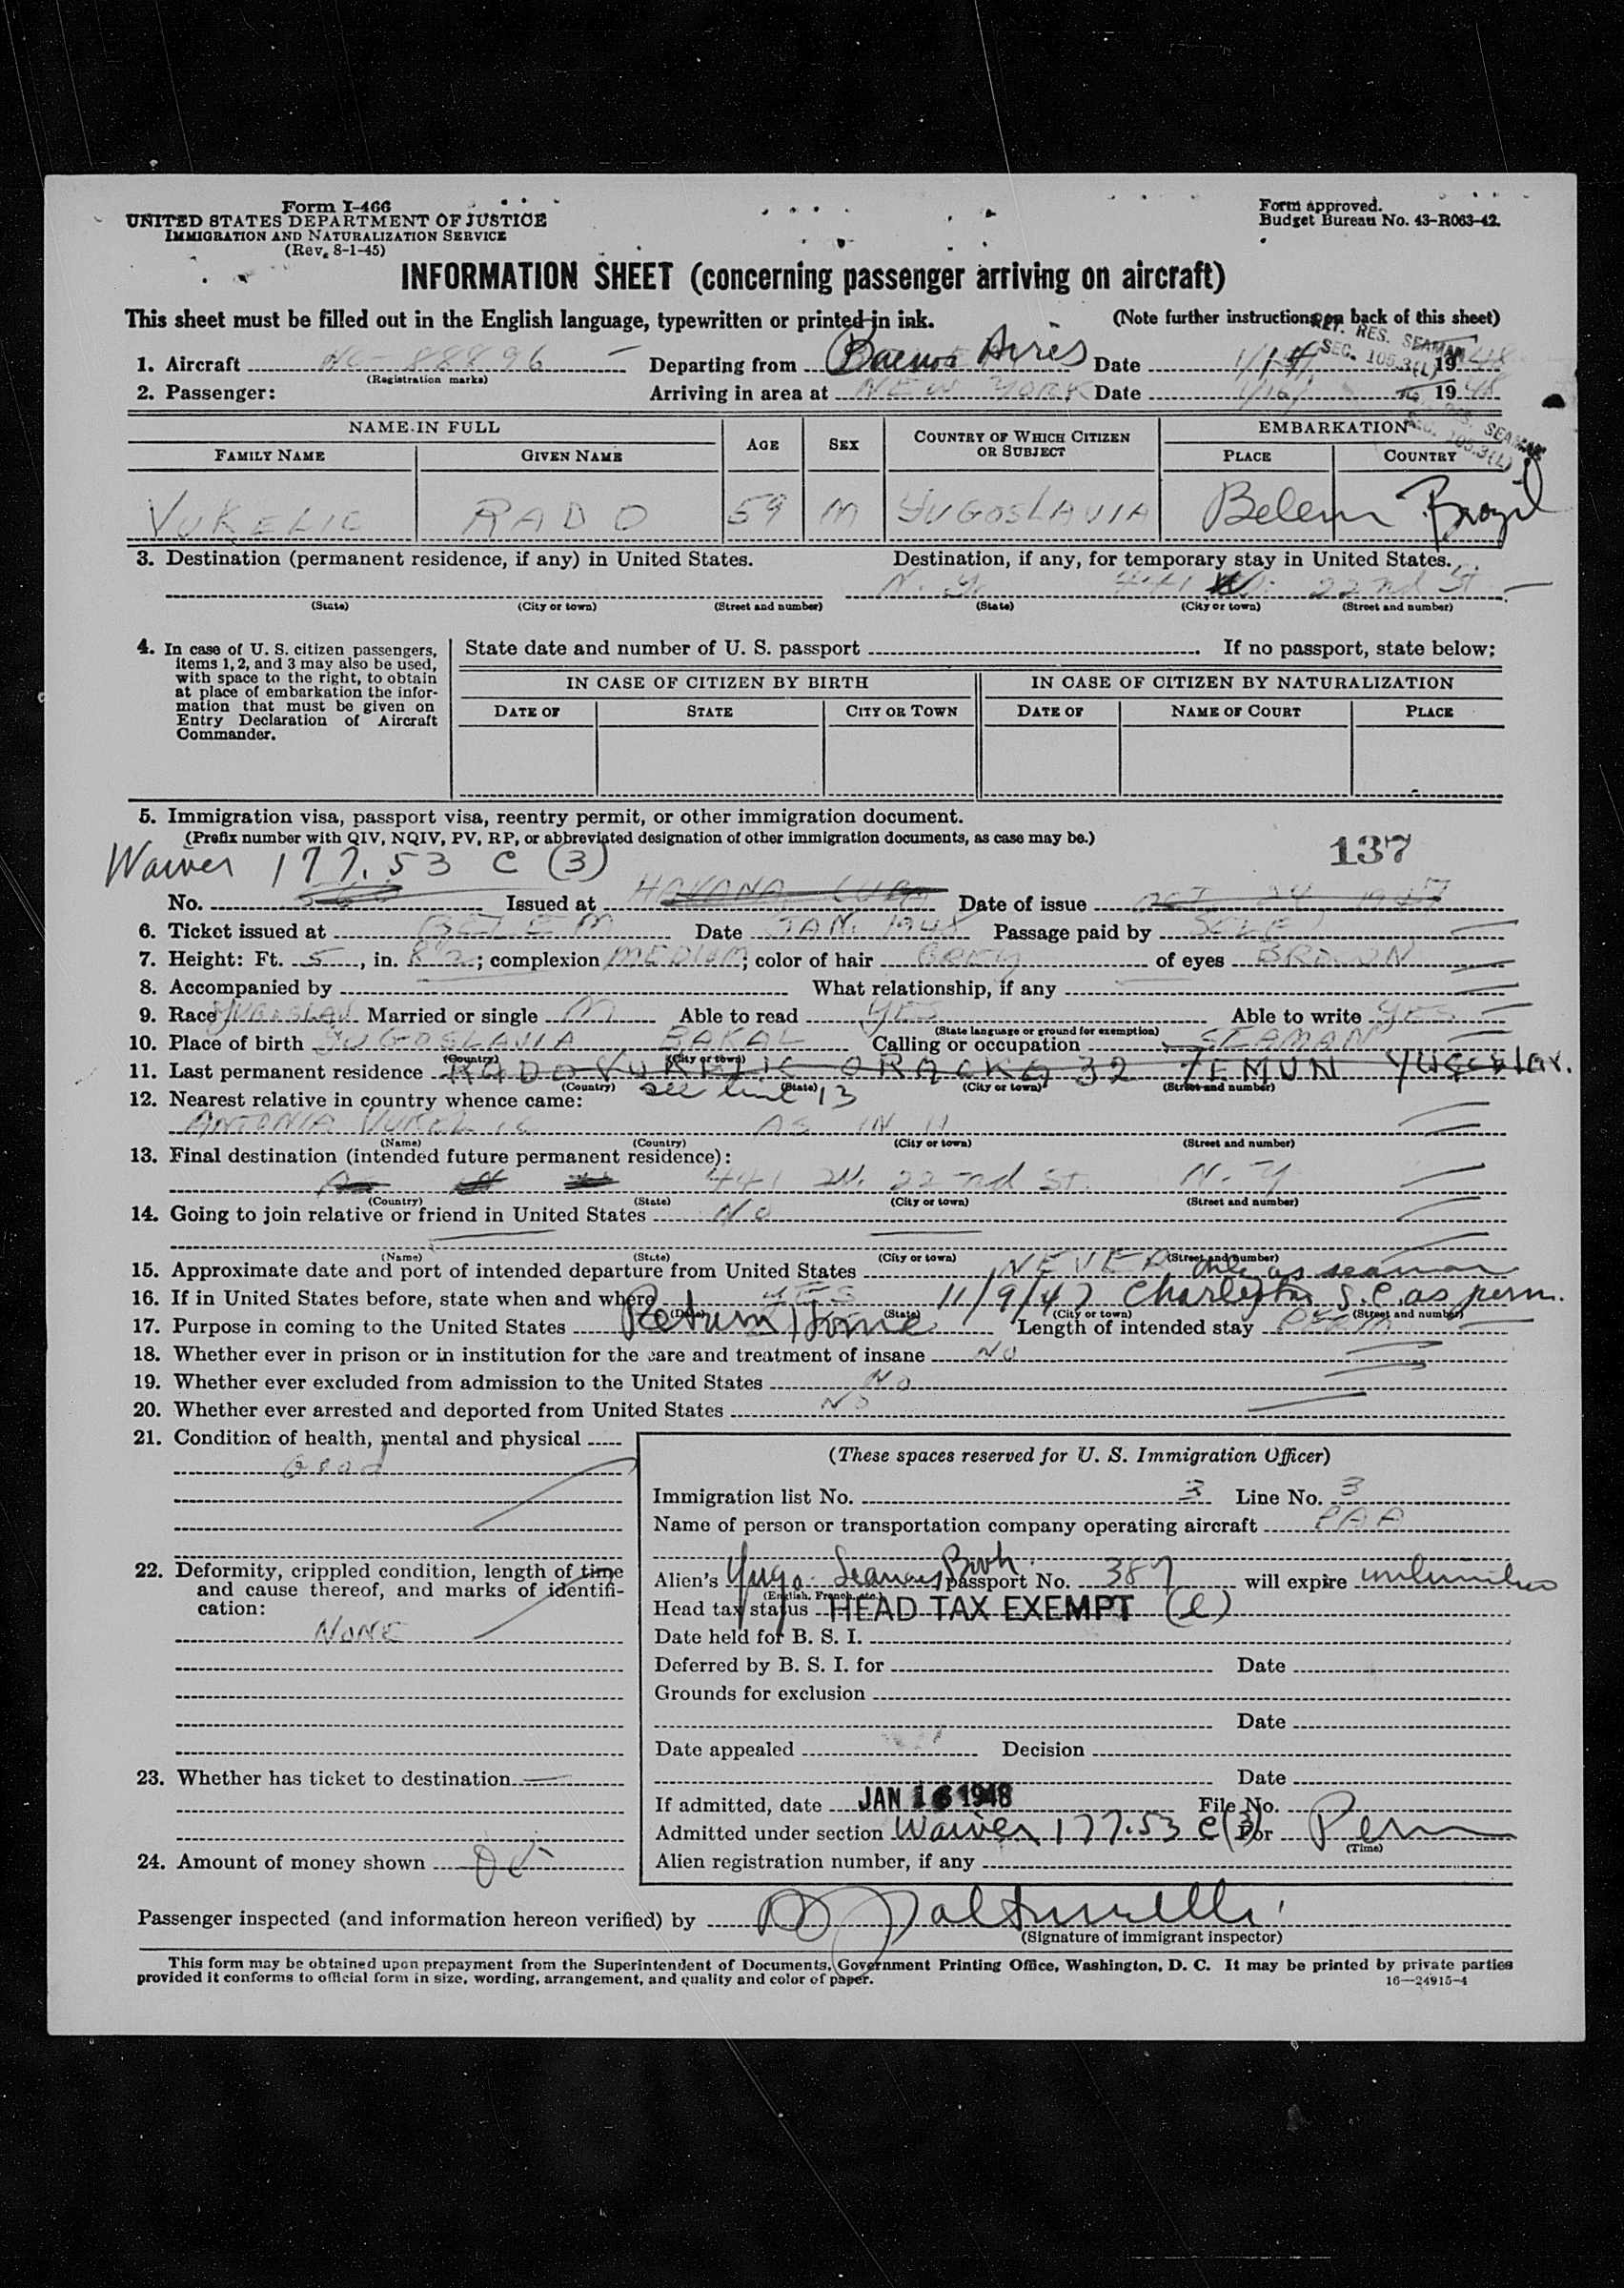 Form I-466
UNITED STATES DEPARTMENT OF JUSTICE
IMMIGRATION AND NATURALIZATION SERVICE
(Rev. 8-1-45)
Form approved.
Budget Bureau No. 43-R063-42.
INFORMATION SHEET (concerning passenger arriving on aircraft)
This sheet must be filled out in the English language, typewritten or printed in ink. (Note further instructions on back of this sheet)
RET. RES. SEAMAN
SEC. 105.3(L)
1. Aircraft NC-88896 Departing from Buenos Aires Date 1/14 1948
(Registration marks)
2. Passenger: Arriving in area at NEW YORK Date 1/16/ 1948
RES. SEAMAN
SEC. 105.3(L)
NAME IN FULL AGE SEX COUNTRY OF WHICH CITIZEN OR SUBJECT EMBARKATION
FAMILY NAME GIVEN NAME PLACE COUNTRY
VUKELIC RADO 59 M YUGOSLAVIA Belem Brazil
3. Destination (permanent residence, if any) in United States. Destination, if any, for temporary stay in United States.
N. Y. 441 W. 22nd St
(State) (City or town) (Street and number) (State) (City or town) (Street and number)
4. In case of U. S. citizen passengers, items 1, 2, and 3 may also be used, with space to the right, to obtain at place of embarkation the information that must be given on Entry Declaration of Aircraft Commander.
State date and number of U. S. passport If no passport, state below:
IN CASE OF CITIZEN BY BIRTH IN CASE OF CITIZEN BY NATURALIZATION
DATE OF STATE CITY OR TOWN DATE OF NAME OF COURT PLACE
5. Immigration visa, passport visa, reentry permit, or other immigration document.
(Prefix number with QIV, NQIV, PV, RP, or abbreviated designation of other immigration documents, as case may be.)
137
Waiver 177.53 C (3)
No. Issued at HAVANA CUBA Date of issue OCT 24 1947
6. Ticket issued at BELEM Date JAN. 1948 Passage paid by SELF
7. Height: Ft. 5, in. 8 1/2; complexion MEDIUM; color of hair GREY of eyes BROWN
8. Accompanied by What relationship, if any
9. Race YUGOSLAV Married or single M Able to read YES Able to write YES
(State language or ground for exemption)
10. Place of birth YUGOSLAVIA BAKAL Calling or occupation SEAMAN
(Country) (City or town)
11. Last permanent residence RADO VUKELIC ORACKA 32 ZEMUN YUGOSLAV.
(Country) (State) (City or town) (Street and number)
see line 13
12. Nearest relative in country whence came:
ANTONIA VUKELIC AS IN 11
(Name) (Country) (City or town) (Street and number)
13. Final destination (intended future permanent residence):
441 W. 22nd St. N. Y
(Country) (State) (City or town) (Street and number)
14. Going to join relative or friend in United States No
(Name) (State) (City or town) (Street and number)
15. Approximate date and port of intended departure from United States NEVER only as seaman
16. If in United States before, state when and where YES 11/9/47 Charleston S.C. as perm.
(Date) (State) (City or town) (Street and number)
17. Purpose in coming to the United States Return Home Length of intended stay PERM
18. Whether ever in prison or in institution for the care and treatment of insane No
19. Whether ever excluded from admission to the United States No
20. Whether ever arrested and deported from United States No
21. Condition of health, mental and physical
Good
22. Deformity, crippled condition, length of time and cause thereof, and marks of identification:
NONE
23. Whether has ticket to destination
24. Amount of money shown
(These spaces reserved for U. S. Immigration Officer)
Immigration list No. 3 Line No. 3
Name of person or transportation company operating aircraft PAA
Alien's Yugo. Seamans Book passport No. 387 will expire unlimited
(English, French, etc.)
Head tax status HEAD TAX EXEMPT (l)
Date held for B. S. I.
Deferred by B. S. I. for Date
Grounds for exclusion
Date
Date appealed Decision
Date
If admitted, date JAN 16 1948 File No.
Admitted under section Waiver 177.53 C(3) For Perm
(Time)
Alien registration number, if any
Passenger inspected (and information hereon verified) by
(Signature of immigrant inspector)
This form may be obtained upon prepayment from the Superintendent of Documents, Government Printing Office, Washington, D. C. It may be printed by private parties
provided it conforms to official form in size, wording, arrangement, and quality and color of paper. 16—24915-4